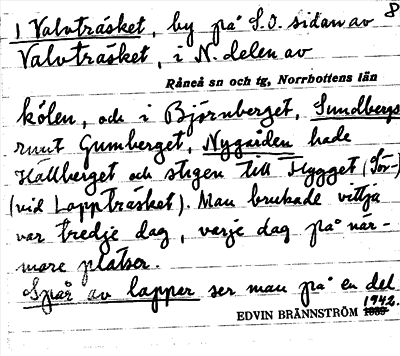 8
1 Valvträsket, by på S.O. sidan av
Valvträsket, i N. delen av
Råneå sn och tg, Norrbottens län
kölen, och i Björnberget, Sundbergs
runt Gumberget, Nygården hade
Hällberget och stigen till Flygget (Sör-)
(vid Lappträsket). Man brukade vittja
var tredje dag, varje dag på när-
mare platser.
Spår av lappar ser man på en del
1942.
EDVIN BRÄNNSTRÖM